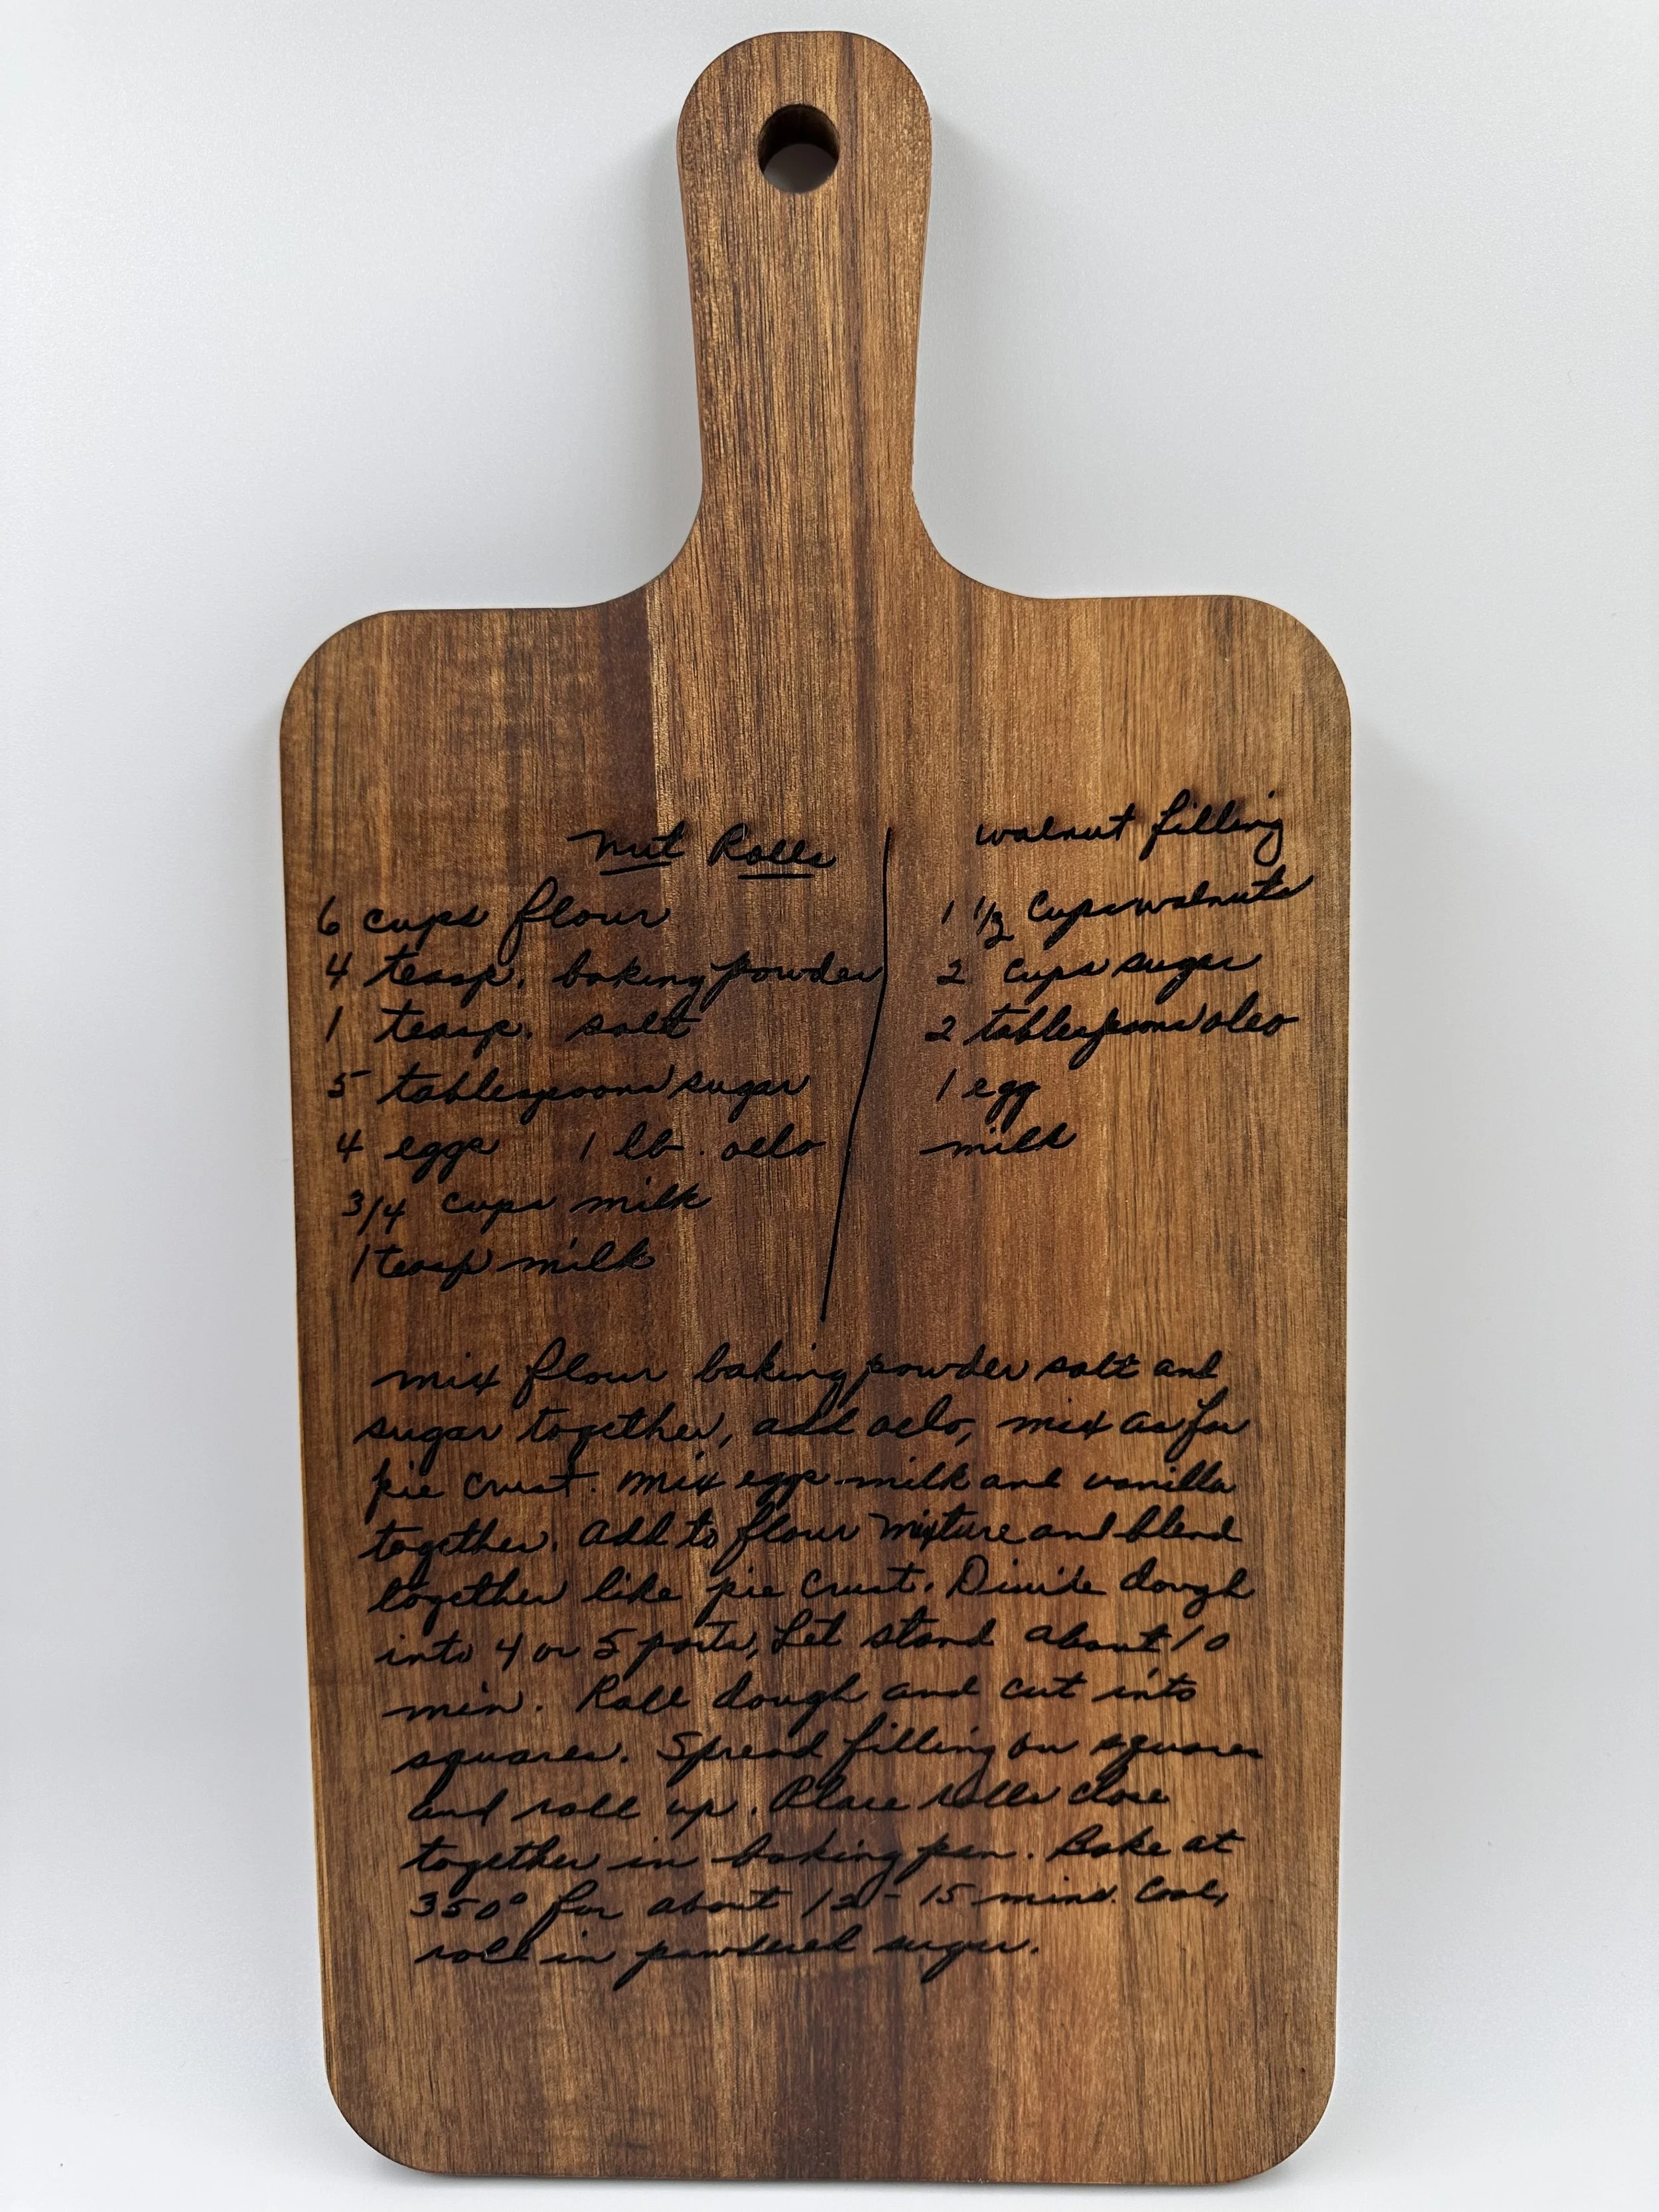 Nut Rolls
6 cups flour
4 teasp. baking powder
1 teasp. salt
5 tablespoons sugar
4 eggs 1 lb. oelo
3/4 cups milk
1 teasp milk
walnut filling
1 1/2 Cups walnuts
2 cups sugar
2 tablespoons oleo
1 egg
milk
mix flour baking powder salt and
sugar together, add oelo, mix as for
pie crust. Mix eggs milk and vanilla
together. Add to flour mixture and blend
together like pie crust. Divide dough
into 4 or 5 parts, Let stand about 10
min. Roll dough and cut into
squares. Spread filling on squares
and roll up. Place rolls close
together in baking pan. Bake at
350° for about 12-15 mins. Cool,
roll in powdered sugar.